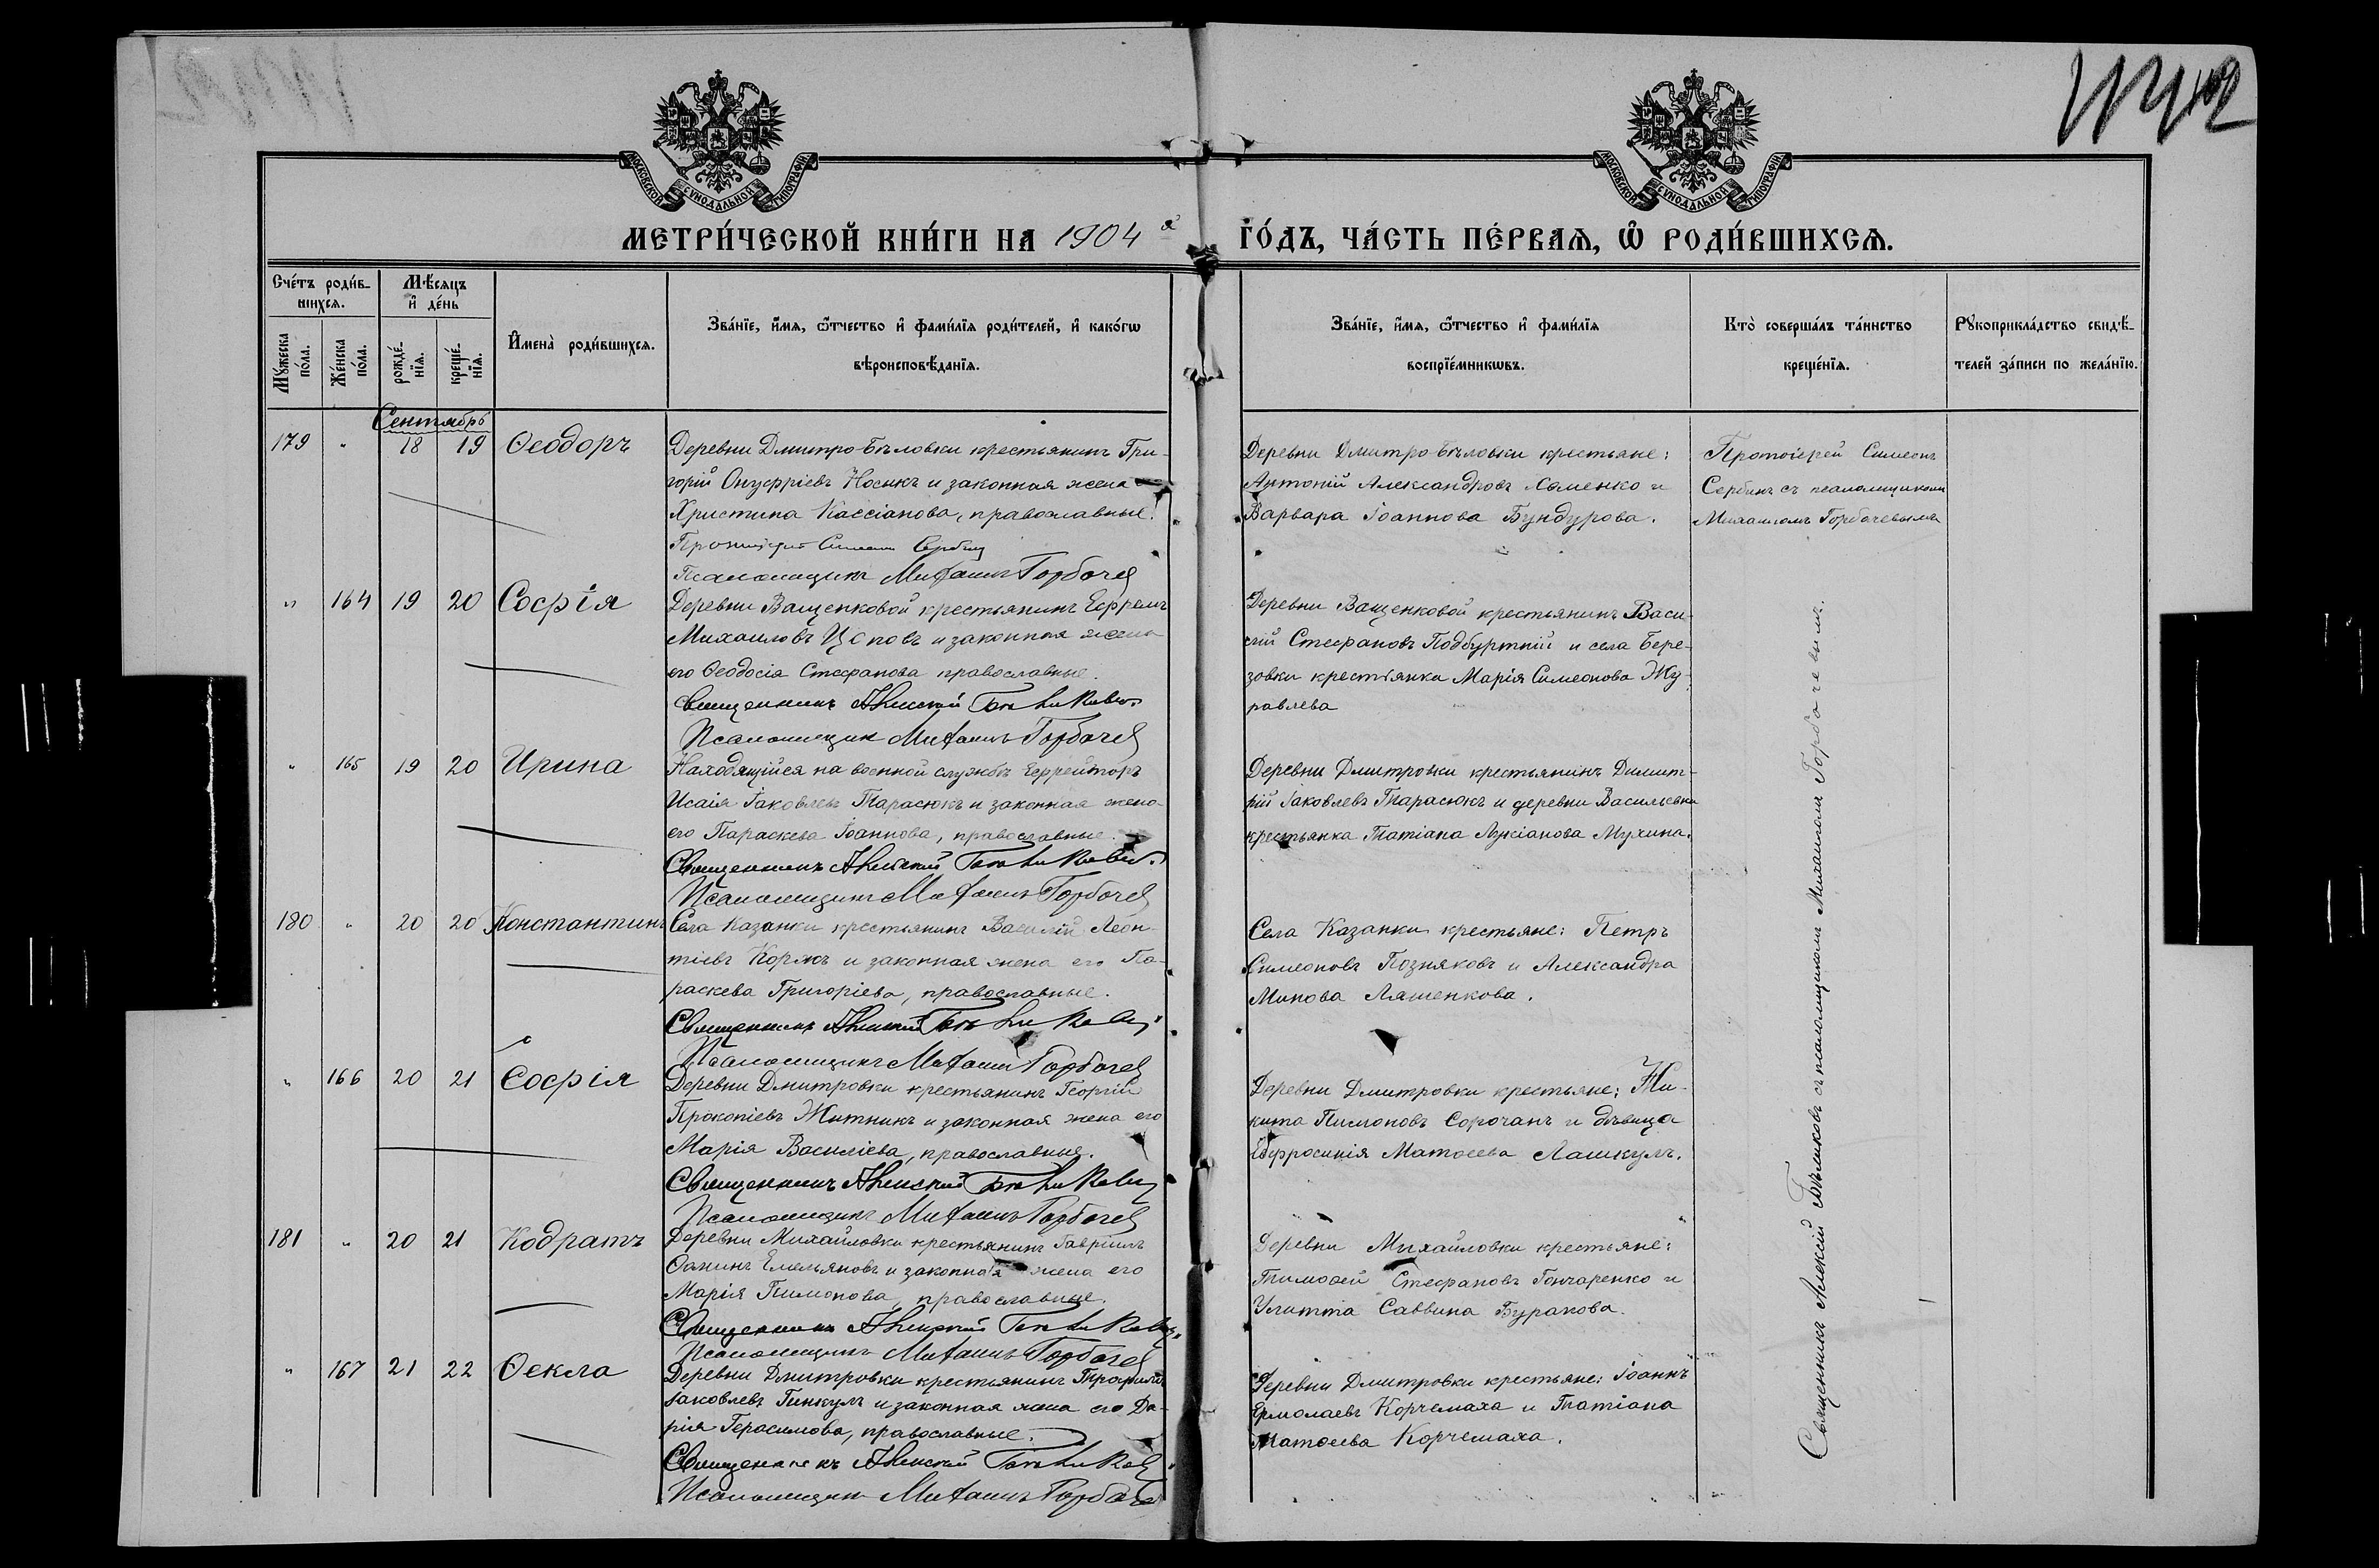 МОСКОВСКОЙ СѴНОДАЛЬНОЙ ТИПОГРАФІИ
МОСКОВСКОЙ СѴНОДАЛЬНОЙ ТИПОГРАФІИ
МЕТРИ́ЧЕСКОЙ КНИ́ГИ НА 1904 й
ГО́ДЪ, ЧА́СТЬ ПЕ́РВАѦ, Ѽ РОДИ́ВШИХСѦ.
Сче́тъ роди́в-
шихсѧ.
Мѣ́сѧцъ
и҆ де́нь
Мꙋ́жеска по́ла.
Же́нска по́ла.
рожде́-
нїѧ.
креще́-
нїѧ.
И҆мена̀ роди́вшихсѧ.
Зва́нїе, и҆́мѧ, ѻ҆́тчество и҆ фами́лїѧ роди́телей, и҆ како́гѡ
вѣроисповѣ́данїѧ.
Зва́нїе, и҆́мѧ, ѻ҆́тчество и҆ фами́лїѧ
воспрїе́мникѡвъ.
Кто̀ соверша́лъ та́инство
креще́нїѧ.
Рꙋкоприкла́дство свидѣ́-
телей за́писи по жела́нїю.
Сентябрь
179 " 18 19 Ѳеодоръ
Деревни Дмитро-Бѣловки крестьянинъ Гри-
горій Онуфріевъ Носикъ и законная жена
Христина Кассіанова, православные.
Протоіерей Симеонъ Сербин
Псаломщикъ Михаилъ Горбачев
Деревни Дмитро-Бѣловки крестьяне:
Антоній Александровъ Хоменко и
Варвара Іоаннова Бундурова.
Протоіерей Симеонъ
Сербинъ съ псаломщикомъ
Михаиломъ Горбачевымъ
" 164 19 20 Софія
Деревни Ващенковой крестьянинъ Ефремъ
Михаиловъ Цоповъ и законная жена
его Ѳеодосія Стефанова православные.
Священникъ Алексій
Псаломщик Михаилъ Горбачев
Деревни Ващенковой крестьянинъ Васи-
лій Стефановъ Подбуртній и села Бере-
зовки крестьянка Марія Симеонова Жу-
равлева
" 165 19 20 Ирина
Находящійся на военной службѣ Ефрейторъ
Исаія Іаковлевъ Тарасюкъ и законная жена
его Параскева Іоаннова, православные.
Священникъ Алексій
Псаломщикъ Михаилъ Горбачев
Деревни Дмитровки крестьянинъ Димит-
рій Іаковлевъ Тарасюкъ и деревни Васильевки
крестьянка Татіана Лукіанова Мухина.
180 " 20 20 Константинъ
Села Казанки крестьянинъ Василій Леон-
тіевъ Коржъ и законная жена его Па-
раскева Григоріева, православные.
Священникъ Алексій
Псаломщикъ Михаилъ Горбачев
Села Казанки крестьяне: Петръ
Симеоновъ Позняковъ и Александра
Минова Ляшенкова.
" 166 20 21 Софія
Деревни Дмитровки крестьянинъ Георгій
Прокопіевъ Житникъ и законная жена его
Марія Василіева, православные.
Священникъ Алексій
Псаломщикъ Михаилъ Горбачев
Деревни Дмитровки крестьяне: Ни-
кита Пимоновъ Сорочанъ и дѣвица
Евфросинія Матѳеева Лашкулъ.
181 " 20 21 Кодратъ
Деревни Михайловки крестьянинъ Гавріилъ
Ѳоминъ Емельяновъ и законная жена его
Марія Пимонова, православные.
Священникъ Алексій
Псаломщикъ Михаилъ Горбачев
Деревни Михайловки крестьяне:
Тимоѳей Стефановъ Гончаренко и
Улитта Саввина Буракова.
" 167 21 22 Ѳекла
Деревни Дмитровки крестьянинъ Трофимъ
Іаковлевъ Гинкулъ и законная жена его Да-
рія Герасимова, православные.
Священникъ Алексій
Псаломщикъ Михаилъ Горбачев
Деревни Дмитровки крестьяне: Іоаннъ
Ермолаевъ Корчемаха и Татіана
Матѳеева Корчемаха.
Священникъ Алексій съ псаломщикомъ Михаиломъ Горбачевымъ.